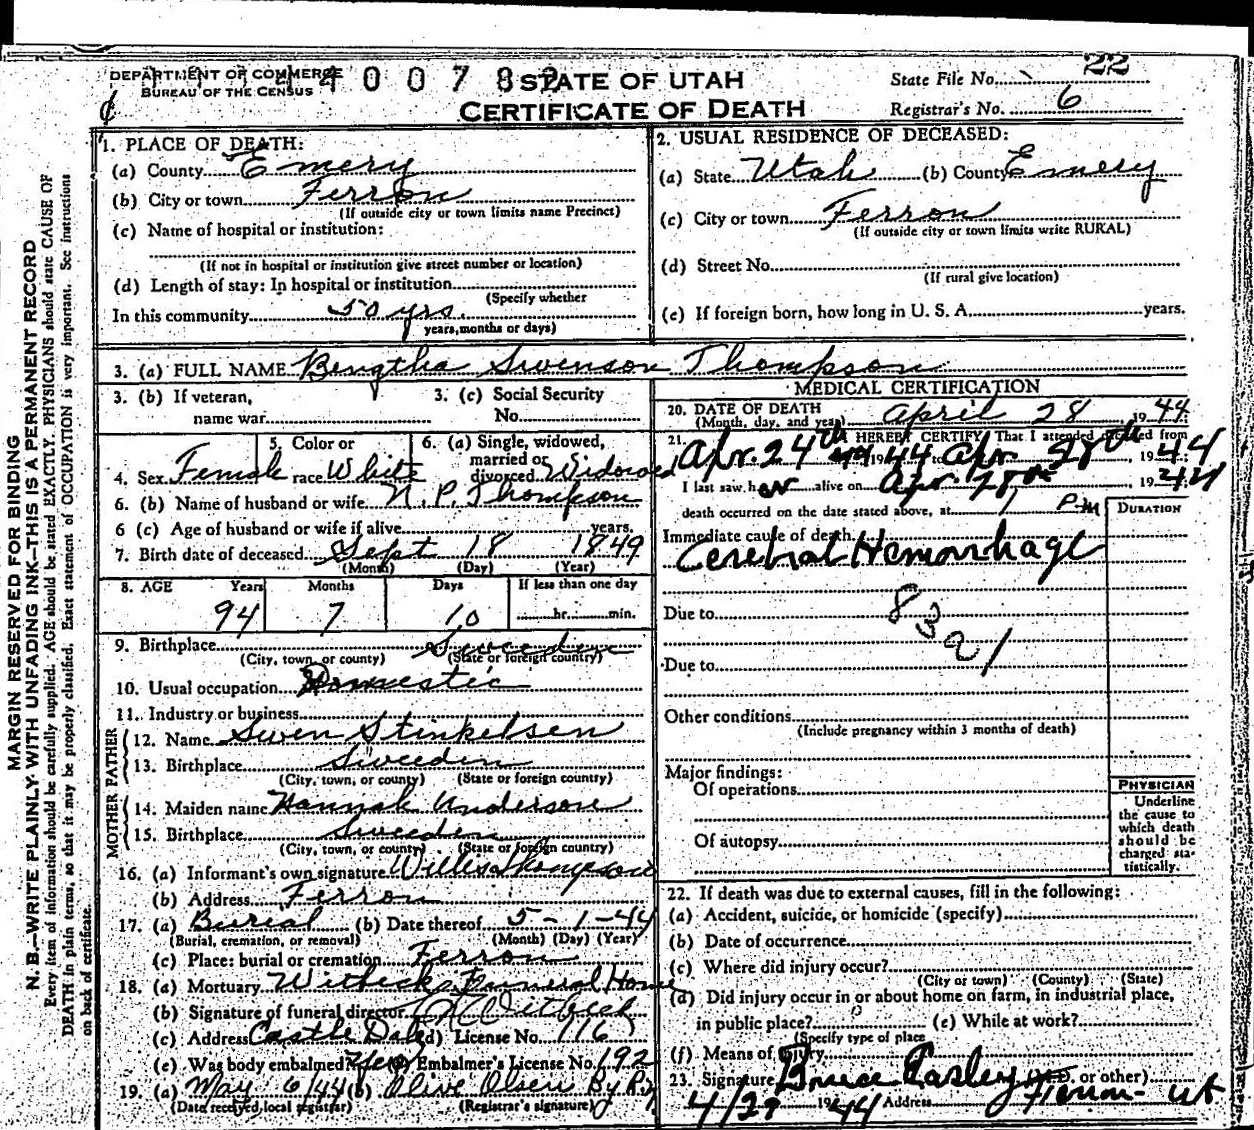 DEPARTMENT OF COMMERCE
BUREAU OF THE CENSUS
STATE OF UTAH
CERTIFICATE OF DEATH
State File No. 22
Registrar's No. 6
1. PLACE OF DEATH:
(a) County Emery
(b) City or town Ferron
(If outside city or town limits name Precinct)
(c) Name of hospital or institution:
(If not in hospital or institution give street number or location)
(d) Length of stay: In hospital or institution
(Specify whether
In this community 50 yrs.
years, months or days)
2. USUAL RESIDENCE OF DECEASED:
(a) State Utah (b) County Emery
(c) City or town Ferron
(If outside city or town limits write RURAL)
(d) Street No.
(If rural give location)
(e) If foreign born, how long in U. S. A. years.
3. (a) FULL NAME Bengtha Swenson Thompson
3. (b) If veteran,
name war
3. (c) Social Security
No.
4. Sex Female
5. Color or
race White
6. (a) Single, widowed,
married or
divorced Widowed
6. (b) Name of husband or wife N. P. Thompson
6 (c) Age of husband or wife if alive years.
7. Birth date of deceased Sept 18 1849
(Month) (Day) (Year)
8. AGE Years Months Days If less than one day
94 7 10 hr. min.
9. Birthplace Sweeden
(City, town, or county) (State or foreign country)
10. Usual occupation Domestic
11. Industry or business
FATHER
12. Name Swen Stinkelsen
13. Birthplace Sweeden
(City, town, or county) (State or foreign country)
MOTHER
14. Maiden name Hannah Anderson
15. Birthplace Sweeden
(City, town, or county) (State or foreign country)
16. (a) Informant's own signature Willis Thompson
(b) Address Ferron
17. (a) Burial (b) Date thereof 5-1-44
(Burial, cremation, or removal) (Month) (Day) (Year)
(c) Place: burial or cremation Ferron
18. (a) Mortuary Witbeck Funeral Home
(b) Signature of funeral director Witbeck
(c) Address Castle Dale (d) License No. 116
(e) Was body embalmed? Yes Embalmer's License No. 192
19. (a) May 6/44 (b) Olive Olsen By
(Date received local registrar) (Registrar's signature)
MEDICAL CERTIFICATION
20. DATE OF DEATH
(Month, day, and year) April 28 1944
21. I HEREBY CERTIFY, That I attended deceased from
Apr. 24th 1944 to Apr 28th 1944
I last saw her alive on Apr. 28th, 1944
death occurred on the date stated above, at PM
DURATION
Immediate cause of death
Cerebral Hemorrhage
Due to
8321
Due to
Other conditions
(Include pregnancy within 3 months of death)
Major findings:
Of operations
Of autopsy
PHYSICIAN
Underline
the cause to
which death
should be
charged sta-
tistically.
22. If death was due to external causes, fill in the following:
(a) Accident, suicide, or homicide (specify)
(b) Date of occurrence
(c) Where did injury occur?
(City or town) (County) (State)
(d) Did injury occur in or about home on farm, in industrial place,
in public place? (e) While at work?
(Specify type of place
(f) Means of injury
23. Signature Bruce Easley (M.D. or other)
4/29 1944 Address Ferron - Ut
MARGIN RESERVED FOR BINDING
N. B.—WRITE PLAINLY WITH UNFADING INK—THIS IS A PERMANENT RECORD
Every item of information should be carefully supplied. AGE should be stated EXACTLY. PHYSICIANS should state CAUSE OF
DEATH in plain terms, so that it may be properly classified. Exact statement of OCCUPATION is very important. See instructions
on back of certificate.